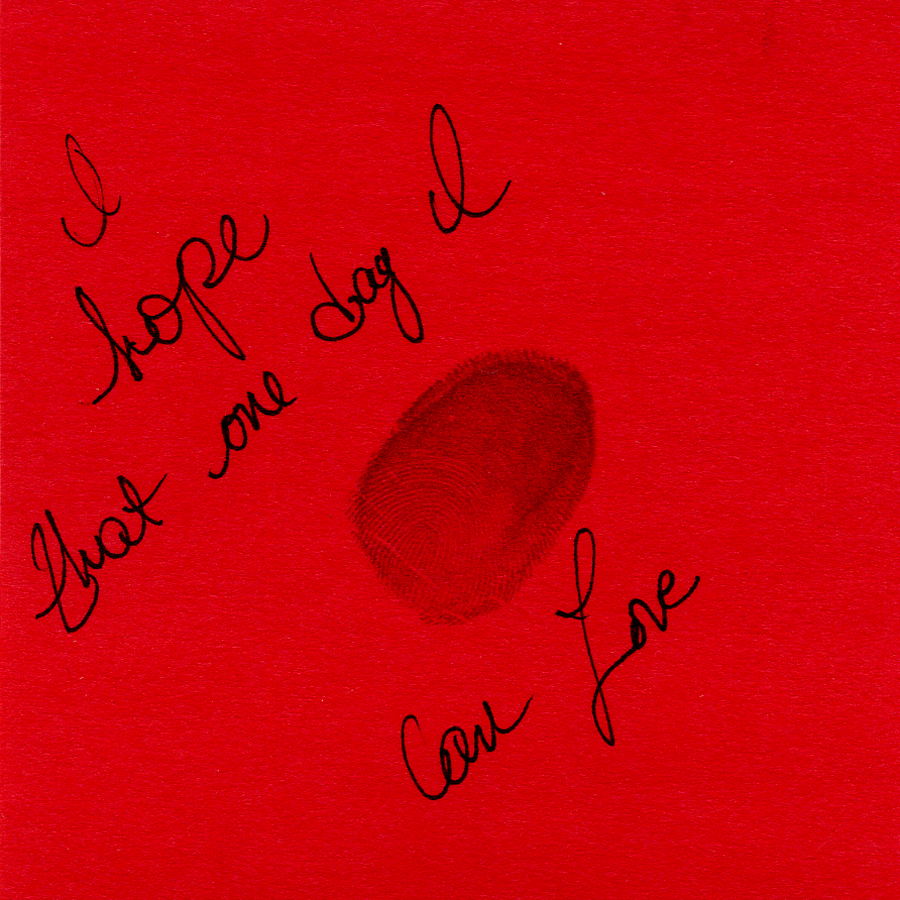 I
hope
that one day I
can Love